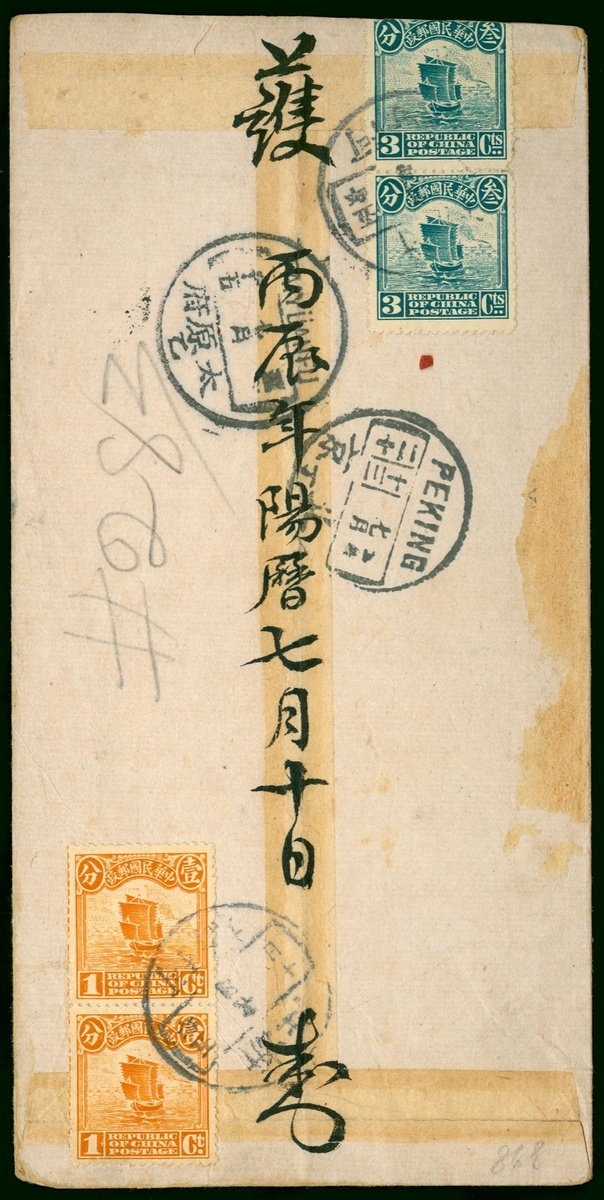 護 丙辰年陽曆七月十日 壽
叁
中華民國郵政
分
3 REPUBLIC OF CHINA POSTAGE Cts
叁
中華民國郵政
分
3 REPUBLIC OF CHINA POSTAGE Cts
太原府
PEKING
京
七月
壹
中華民國郵政
分
1 REPUBLIC OF CHINA POSTAGE Ct.
壹
中華民國郵政
分
1 REPUBLIC OF CHINA POSTAGE Ct.
868